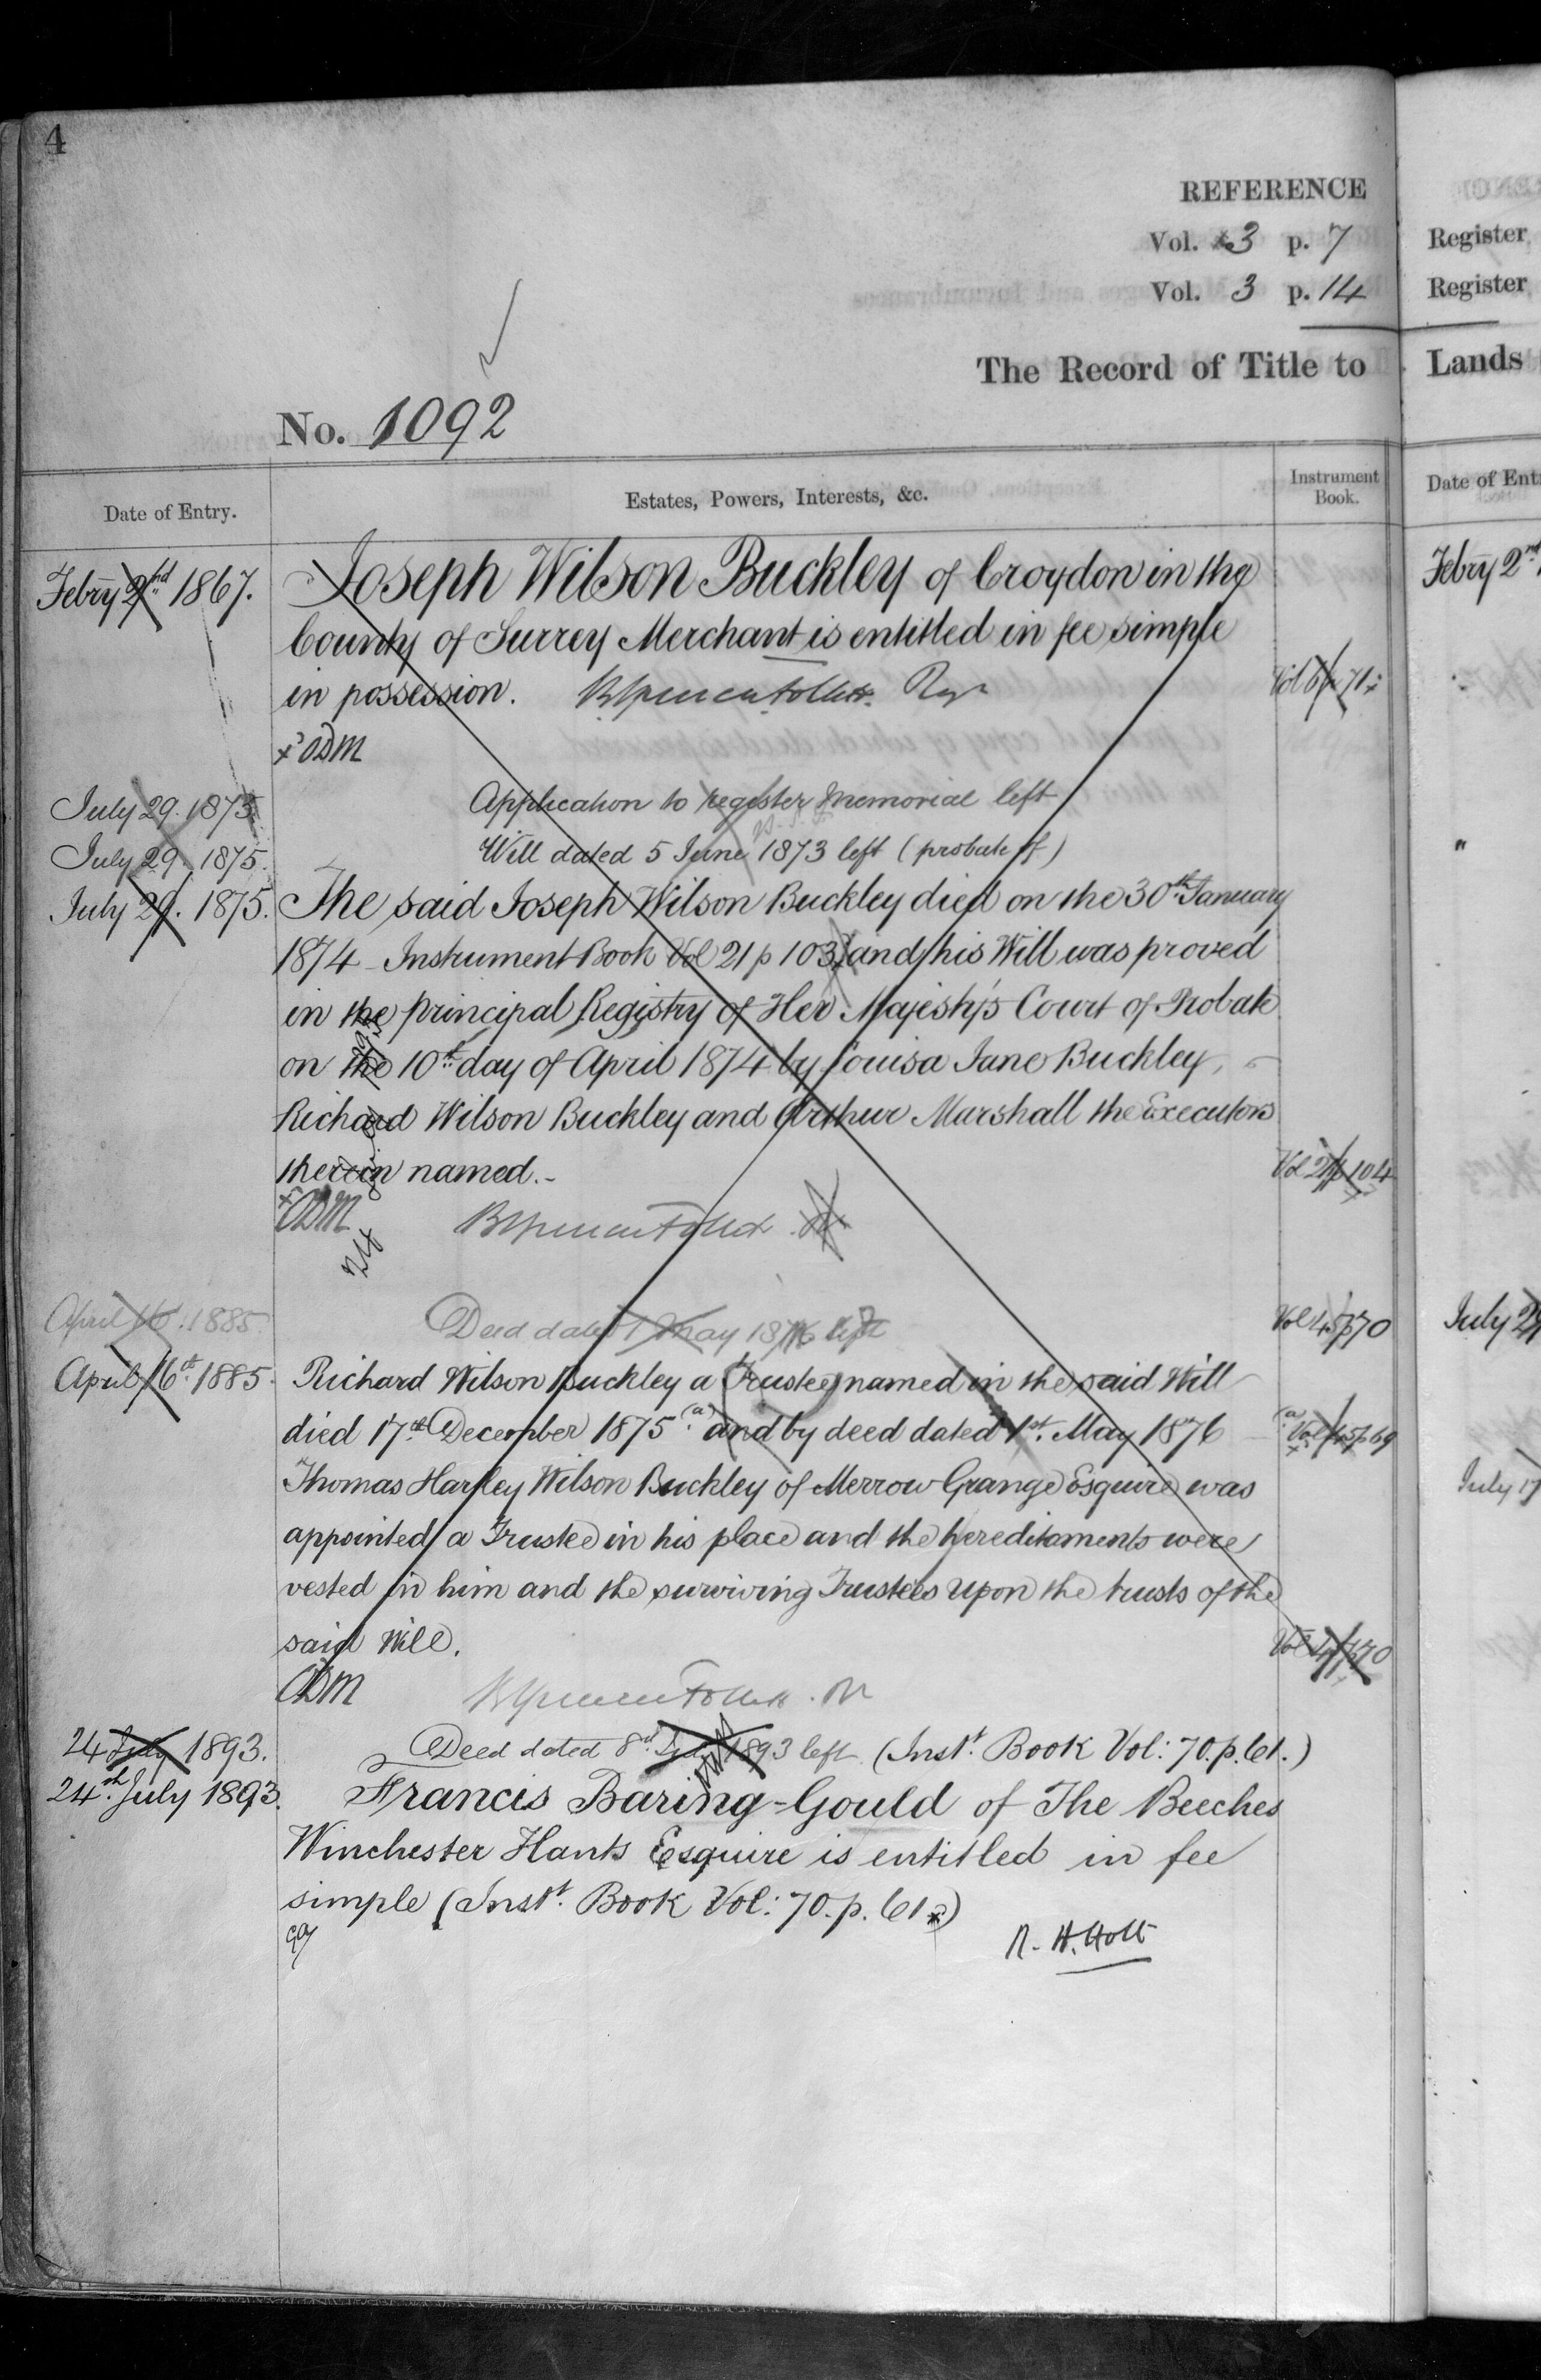 4
REFERENCE
Vol. 3 p. 7
Vol. 3 p. 14
The Record of Title to
No. 1092
Date of Entry.
Estates, Powers, Interests, &c.
Instrument Book.
Febry 2nd 1867.
Joseph Wilson Buckley of Croydon in the
County of Surrey Merchant is entitled in fee simple
in possession.
p 71
ODM
July 29. 1875
Application to register Memorial left
July 29. 1875.
Will dated 5 June 1873 left (probate of)
July 29. 1875.
The said Joseph Wilson Buckley died on the 30th January
1874 - Instrument Book Vol 21 p 103 and his Will was proved
in the principal Registry of Her Majesty's Court of Probate
on the 10th day of April 1874 by Louisa Jane Buckley,
Richard Wilson Buckley and Arthur Marshall the Executors
therein named.-
Vol 21 p 104
ODM
April 16. 1885
Deed dated 1 May 1876 left
Vol 45 p 70
April 16th 1885.
Richard Wilson Buckley a Trustee named in the said Will
died 17th December 1875 (a) and by deed dated 1st. May 1876
(a) Vol 45 p 69
Thomas Harley Wilson Buckley of Merrow Grange Esquire was
appointed a Trustee in his place and the hereditaments were
vested in him and the surviving Trustees upon the trusts of the
said Will.
Vol 45 p 70
ODM
24 July 1893.
Deed dated 8th July 1893 left (Instt. Book Vol: 70. p. 61.)
24th July 1893.
Francis Baring-Gould of The Beeches
Winchester Hants Esquire is entitled in fee
simple (Instt. Book Vol: 70. p. 61)
R. H. Holt
Register
Register
Lands
Date of Ent
Febry 2nd
"
July 29
July 17